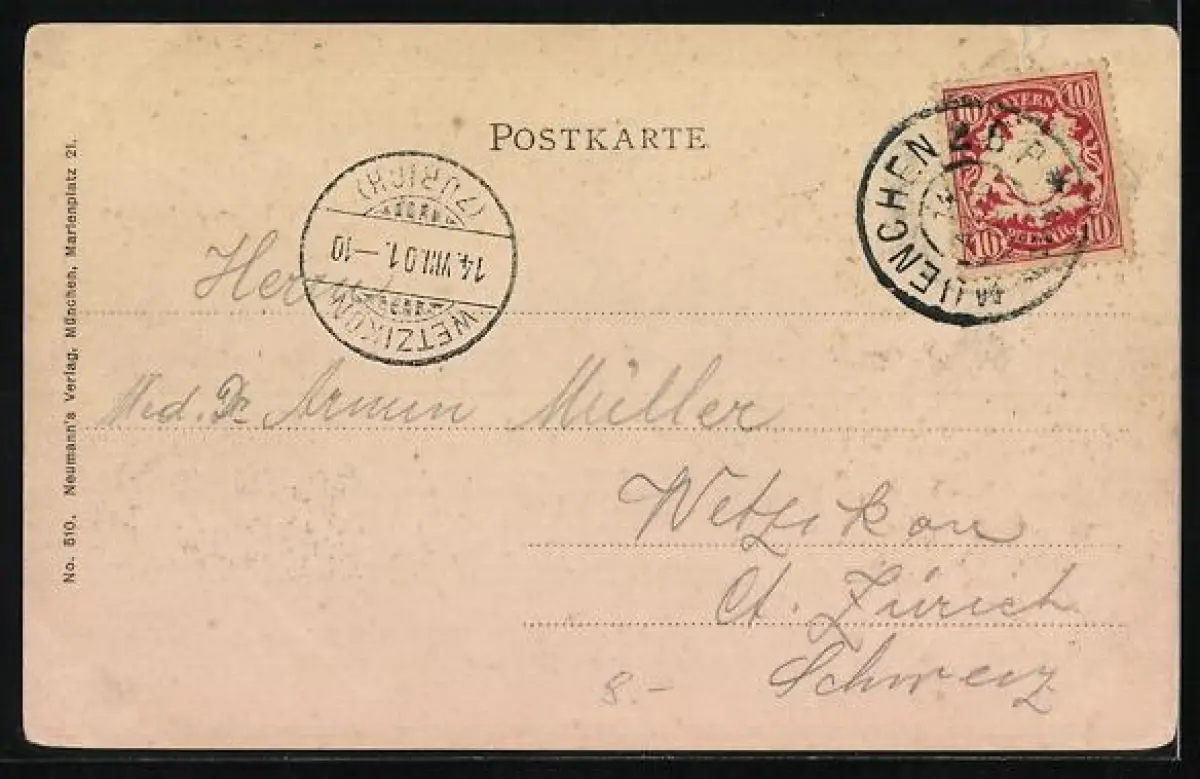 POSTKARTE
BAYERN
10 10
10 PFENNIG 10
MUENCHEN 2 B.P.
(ZÜRICH)
14.VIII.01.–10
WETZIKON
Herrn
Med. Dr. Armin Müller
Wetzikon
Ct. Zürich
Schweiz
8.–
No. 510. Neumann's Verlag, München, Marienplatz 21.